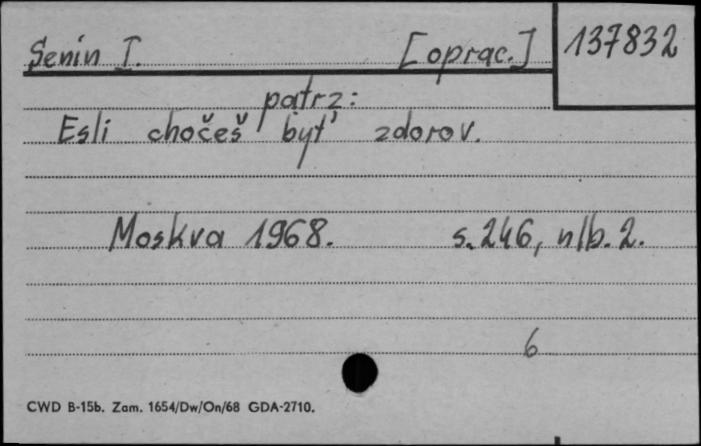 Senin I. [oprac.] 137832
patrz:
Esli chočeš byt' zdorov.
Moskva 1968. s. 246, nlb. 2.
6
CWD B-15b. Zam. 1654/Dw/On/68 GDA-2710.